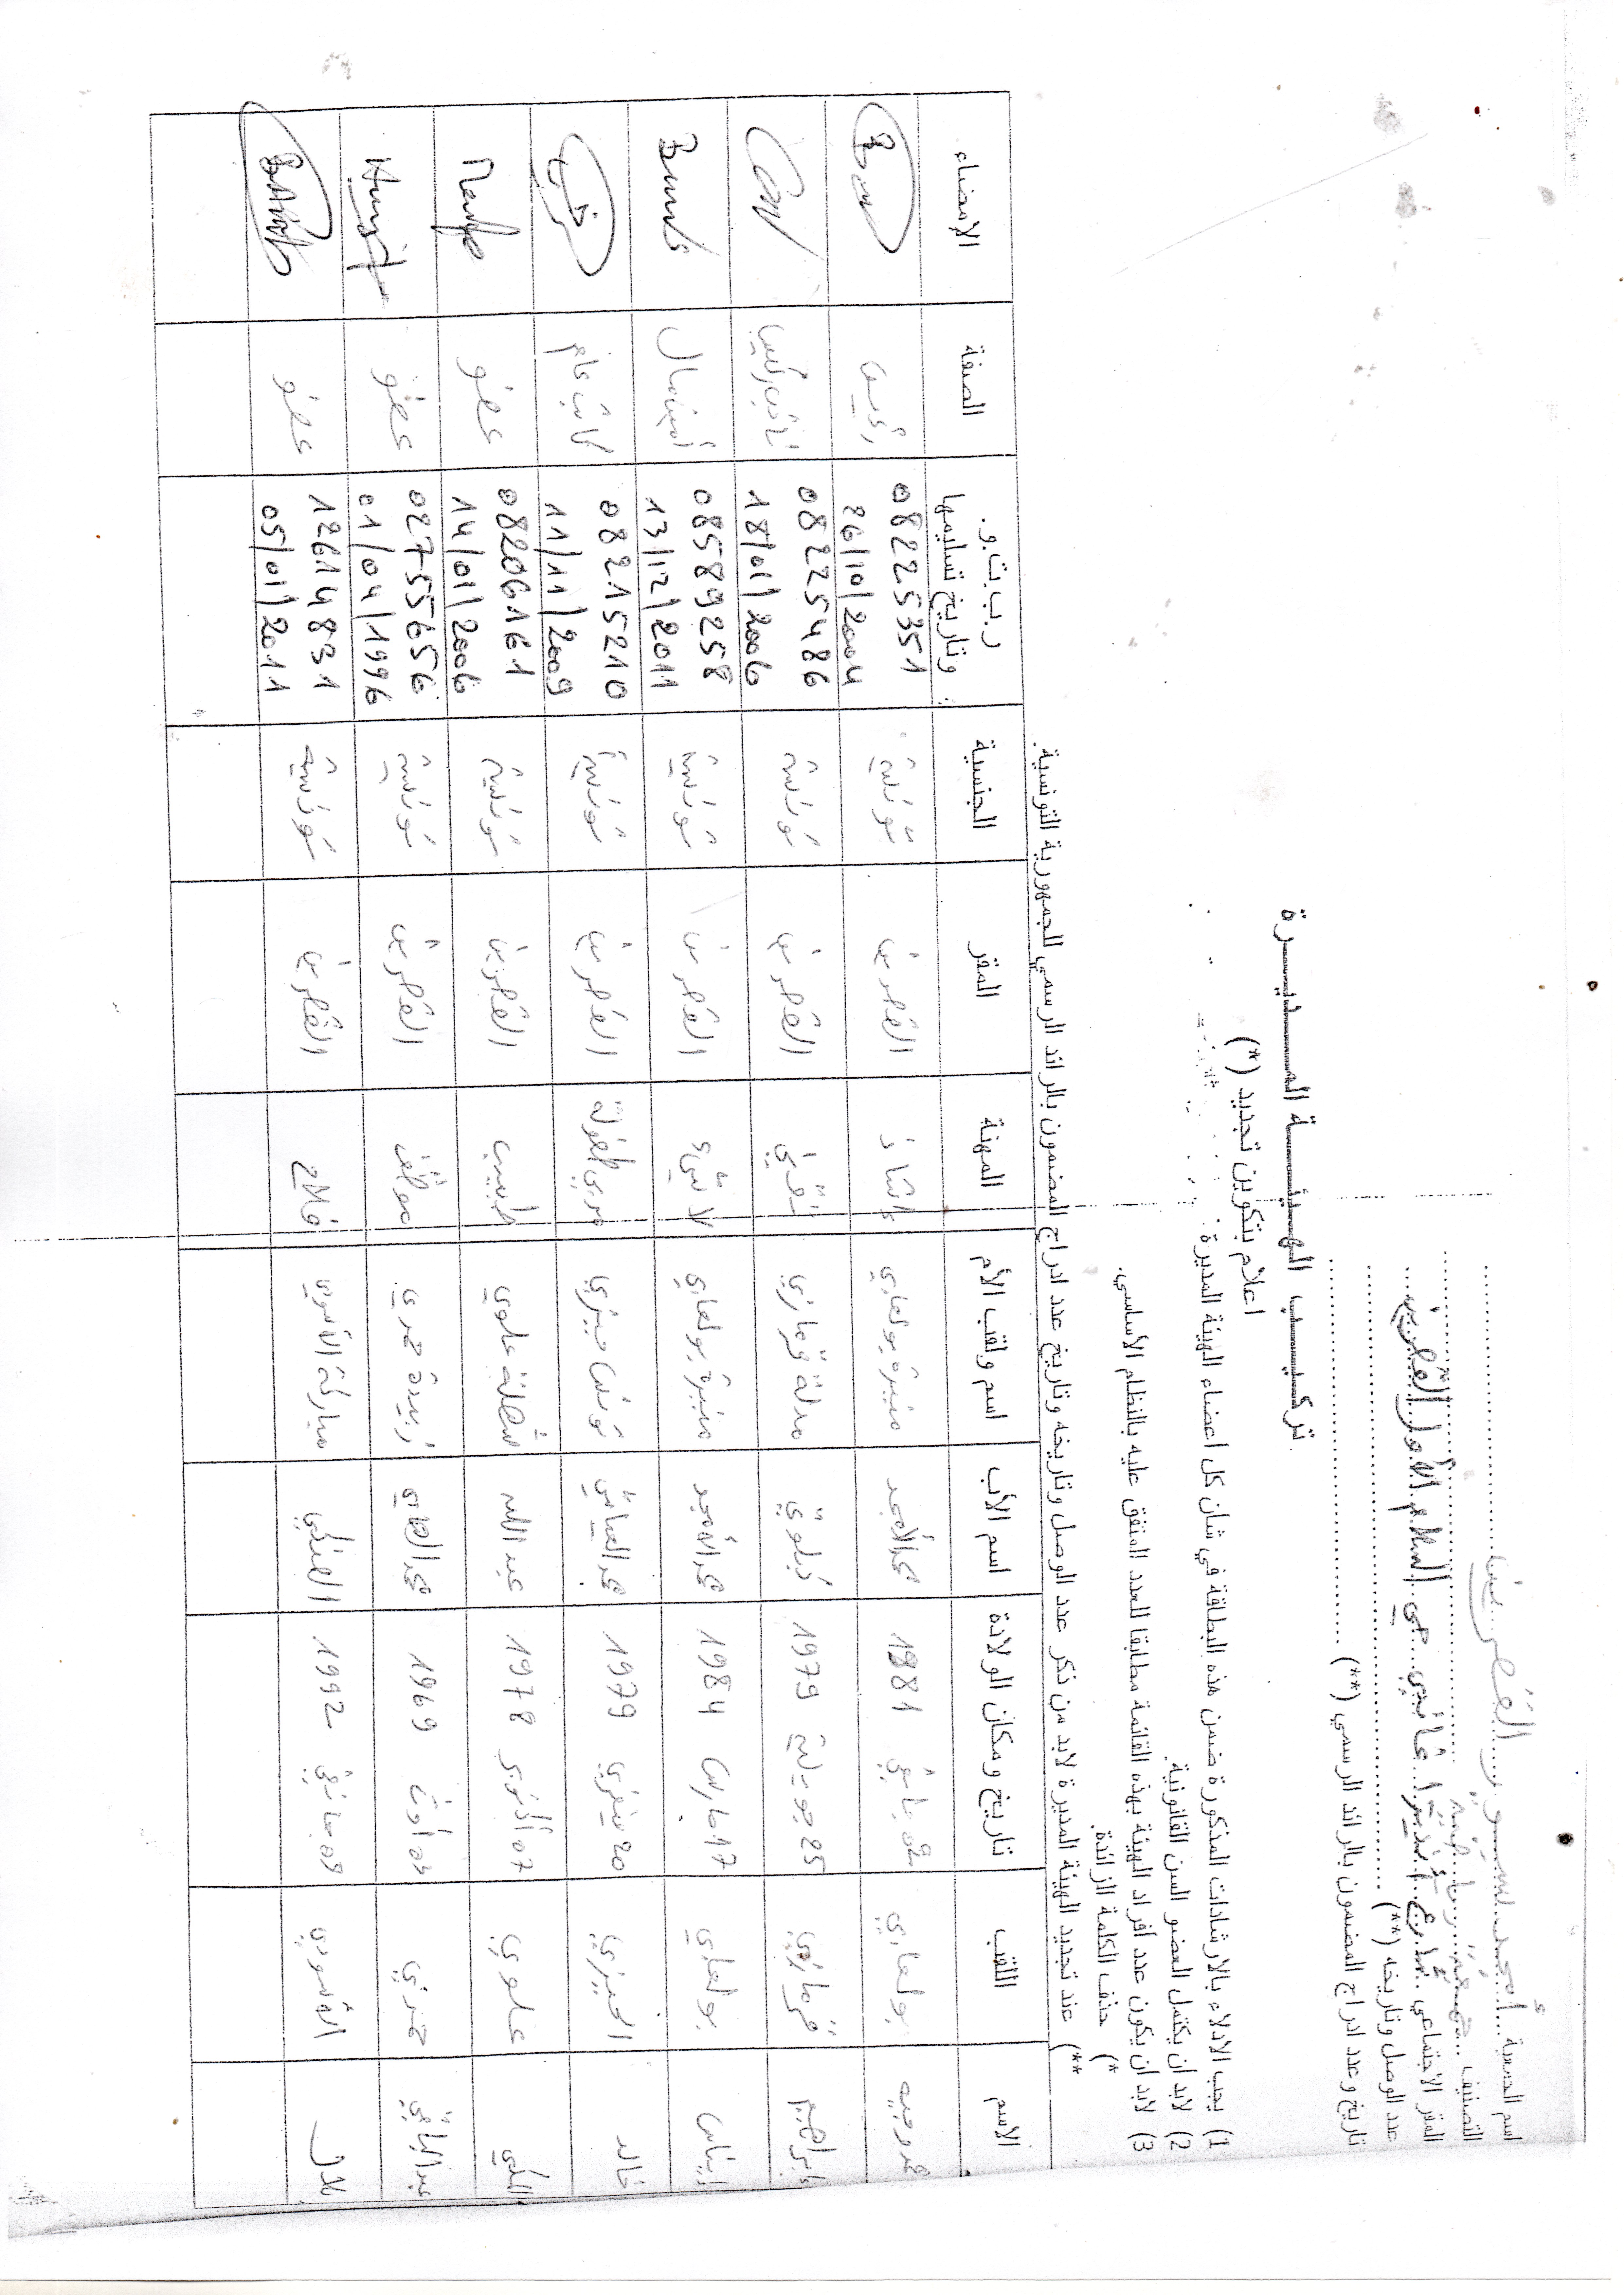 اسم الجمعية ... أمجد سبور القصرين
التصنيف ... جمعية رياضية
المقر الاجتماعي ... شارع ... حي السلام الأول القصرين
عدد الوصل وتاريخه (**)
تاريخ وعدد ادراج المضمون بالرائد الرسمي (**)
تركيب الهيئة المديرة
اعلام بتكوين تجديد (*)
1) يجب الادلاء بالارشادات المذكورة ضمن هذه البطاقة في شأن كل أعضاء الهيئة المديرة :
2) لابد أن يكتمل العضو السن القانونية.
3) لابد أن يكون عدد أفراد الهيئة بهذه القائمة مطابقا للعدد المتفق عليه بالنظام الأساسي.
*) حذف الكلمة الزائدة.
**) عند تجديد الهيئة المديرة لابد من ذكر عدد الوصل وتاريخه وتاريخ عدد ادراج المضمون بالرائد الرسمي للجمهورية التونسية.
الاسم اللقب تاريخ ومكان الولادة اسم الأب اسم ولقب الأم المهنة المقر الجنسية ر.ب.ت.و. وتاريخ تسليمها الصفة الإمضاء
محمد وجيه بولعابي جانفي 1981 محمد الأمجد منيرة بولعابي أستاذ القصرين تونسية 08225351 26/10/2004 رئيس
إبراهيم قرمازي 25 جويلية 1979 مدلة قرمازي تقني القصرين تونسية 08225486 18/01/2006 نائب رئيس
إيناس بولعابي 17 مارس 1984 محمد الأمجد منيرة بولعابي لا شيء القصرين تونسية 08589258 13/12/2011 أمين مال
خالد الميزي 20 فيفري 1979 محمد العياشي تونس ميزي مربي طفولة القصرين تونسية 08215210 11/11/2009 كاتب عام
المكي علوي 07 أكتوبر 1978 عبد الله علوي طبيب القصرين تونسية 08206161 14/01/2006 عضو
عبد الباقي حمزي أوت 1969 محمد الهادي زبيدة حمزي موظف القصرين تونسية 02755656 01/04/1996 عضو
بلال 09 جانفي 1992 مباركة فلاح القصرين تونسية 12614831 05/01/2011 عضو